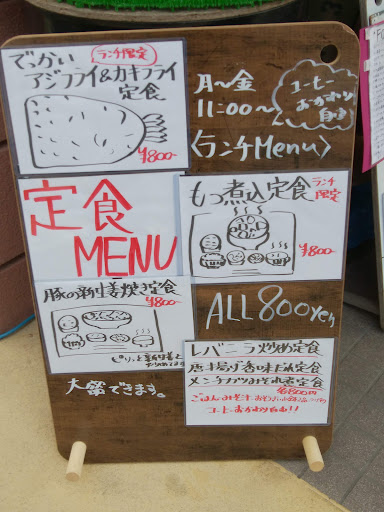 でっかい
ランチ限定
アジフライ&カキフライ
定食
¥800-
月〜金
11:00〜
コーヒー
おかわり
自由
〈ランチMenu〉
定食
MENU
もつ煮込定食
ランチ
限定
¥800-
豚の新生姜焼き定食
¥800-
ピリッと新生姜と
ALL 800yen
大盛できます。
レバニラ炒め定食
唐揚げ香味だれ定食
メンチカツおろし煮定食
各800円
ごはん・みそ汁
コーヒーおかわり自由!!